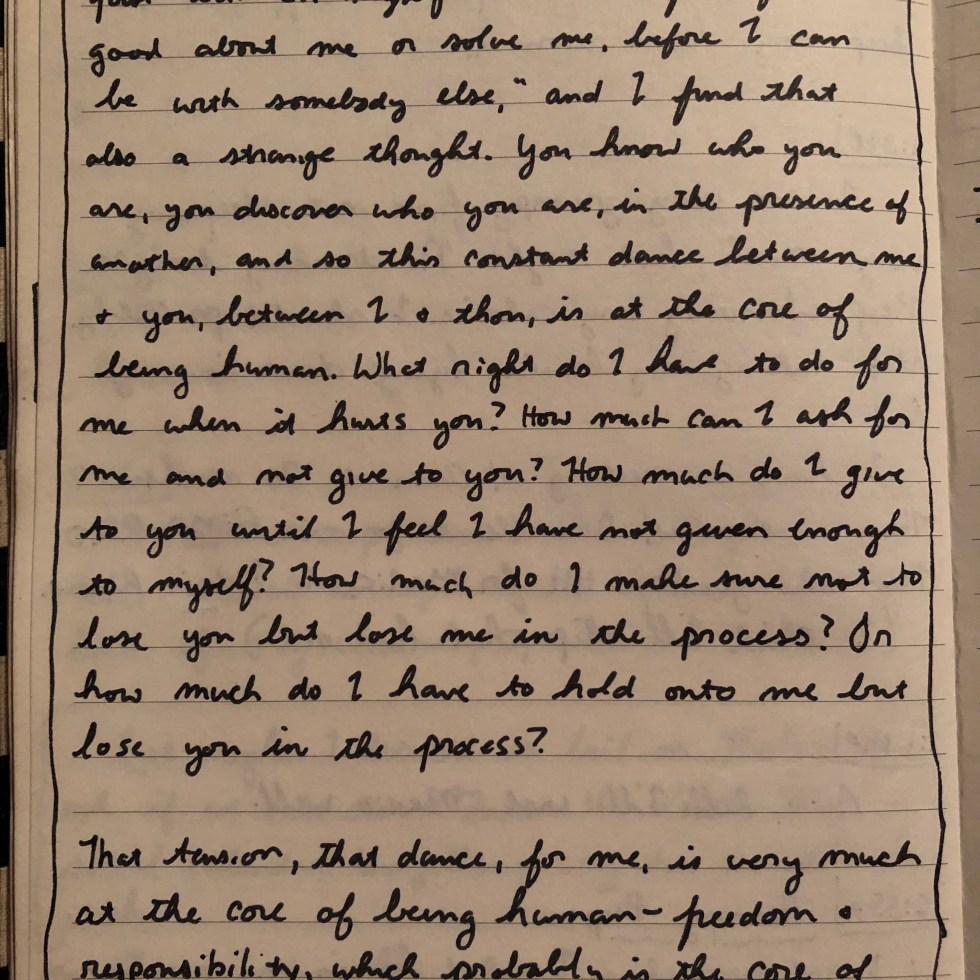 good about me or solve me, before I can
be with somebody else," and I find that
also a strange thought. You know who you
are, you discover who you are, in the presence of
another, and so this constant dance between me
+ you, between I + thou, is at the core of
being human. What right do I have to do for
me when it hurts you? How much can I ask for
me and not give to you? How much do I give
to you until I feel I have not given enough
to myself? How much do I make sure not to
lose you but lose me in the process? Or
how much do I have to hold onto me but
lose you in the process?
That tension, that dance, for me, is very much
at the core of being human - freedom +
responsibility, which probably is the core of